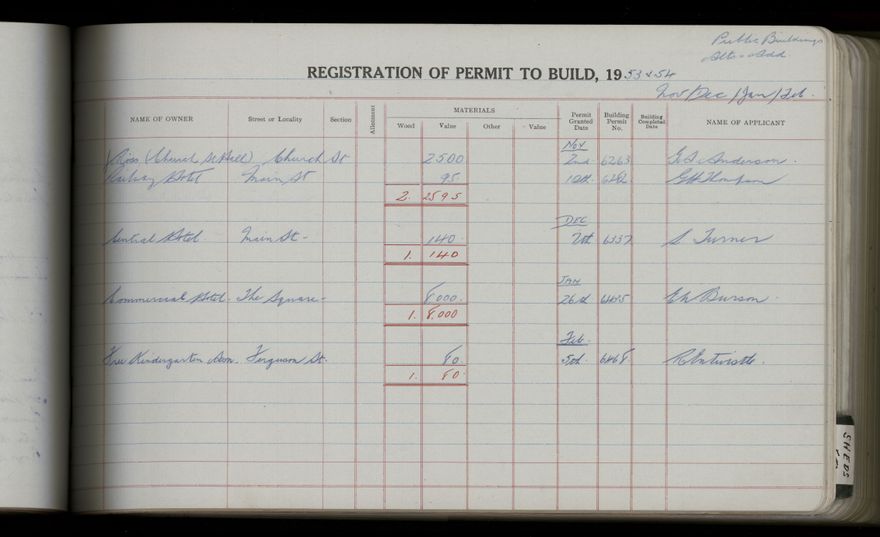 Public Buildings
Alts - Add
REGISTRATION OF PERMIT TO BUILD, 1953 & 54
Nov/Dec/Jan/Feb.
NAME OF OWNER Street or Locality Section Allotment MATERIALS Wood Value Other Value Permit Granted Date Building Permit No. Building Completed Date NAME OF APPLICANT
Nov
Ross (Church St Hall) Church St 2500 2nd 6263 Anderson.
Railway Hotel Main St 95. G H Thompson
2. 2595
DEC
Central Hotel Main St - 140 - 6337 S Turner
1. 140
JAN
Commercial Hotel. The Square - 8,000. 26th
1. 8,000
Feb.
Free Kindergarten Assn. Ferguson St. 80. 5th 6468 R Entwistle.
1. 80.
SHEDS